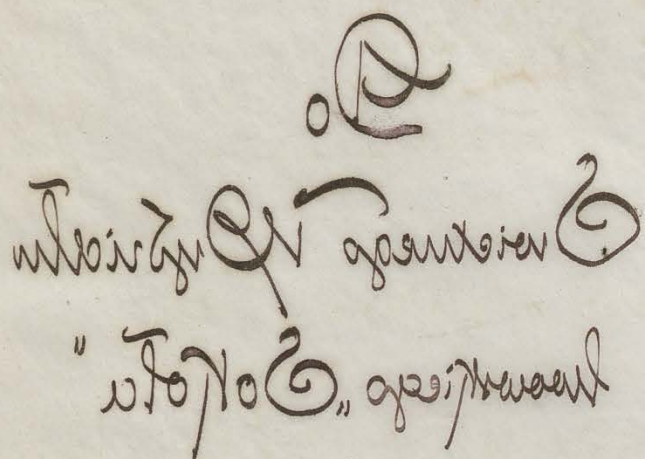 Do
Świetnego Wydziału
lwowskiego „Sokoła”